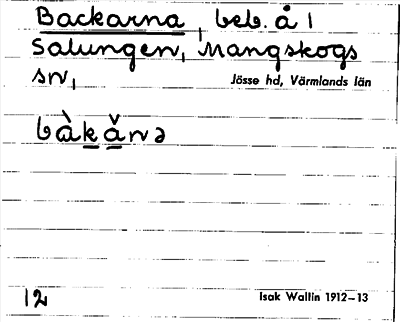 Backarna, beb. å 1
Salungen, Mangskogs
sn,
Jösse hd, Värmlands län
bàkǎnə
12
Isak Wallin 1912–13